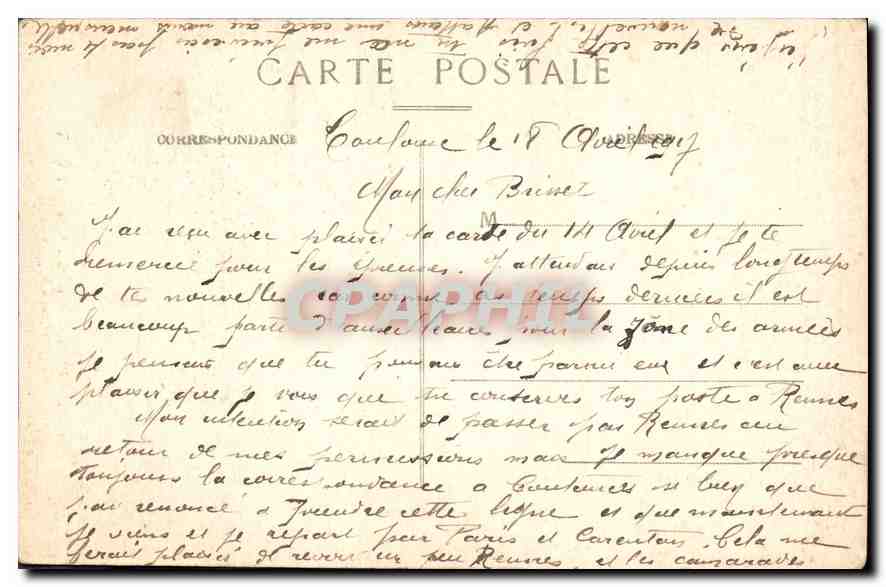 CARTE POSTALE
CORRESPONDANCE
ADRESSE
le 18 Avril 1917
Mon cher Brisset
M
J'ai reçu avec plaisir ta carte du 14 Avril et je te
remercie pour les J'attendais depuis longtemps
de tes nouvelles car comme ces temps derniers il est
beaucoup parti d'auxiliaires pour la zône des armées
je pensais que tu pouvais être parmi eux et c'est avec
plaisir que je vois que tu conserves ton poste à Rennes
Mon intention serait de passer par Rennes au
retour de mes permissions mais je manque presque
toujours la correspondance à Coutances si bien que
j'ai renoncé à prendre cette ligne et que maintenant
je viens et je repart par Paris et Carentan. Cela me
ferait plaisir de revoir un peu Rennes et les camarades
que cette fois tu ne me
nouvelle et j'attends une carte au moins
CPAPHIL